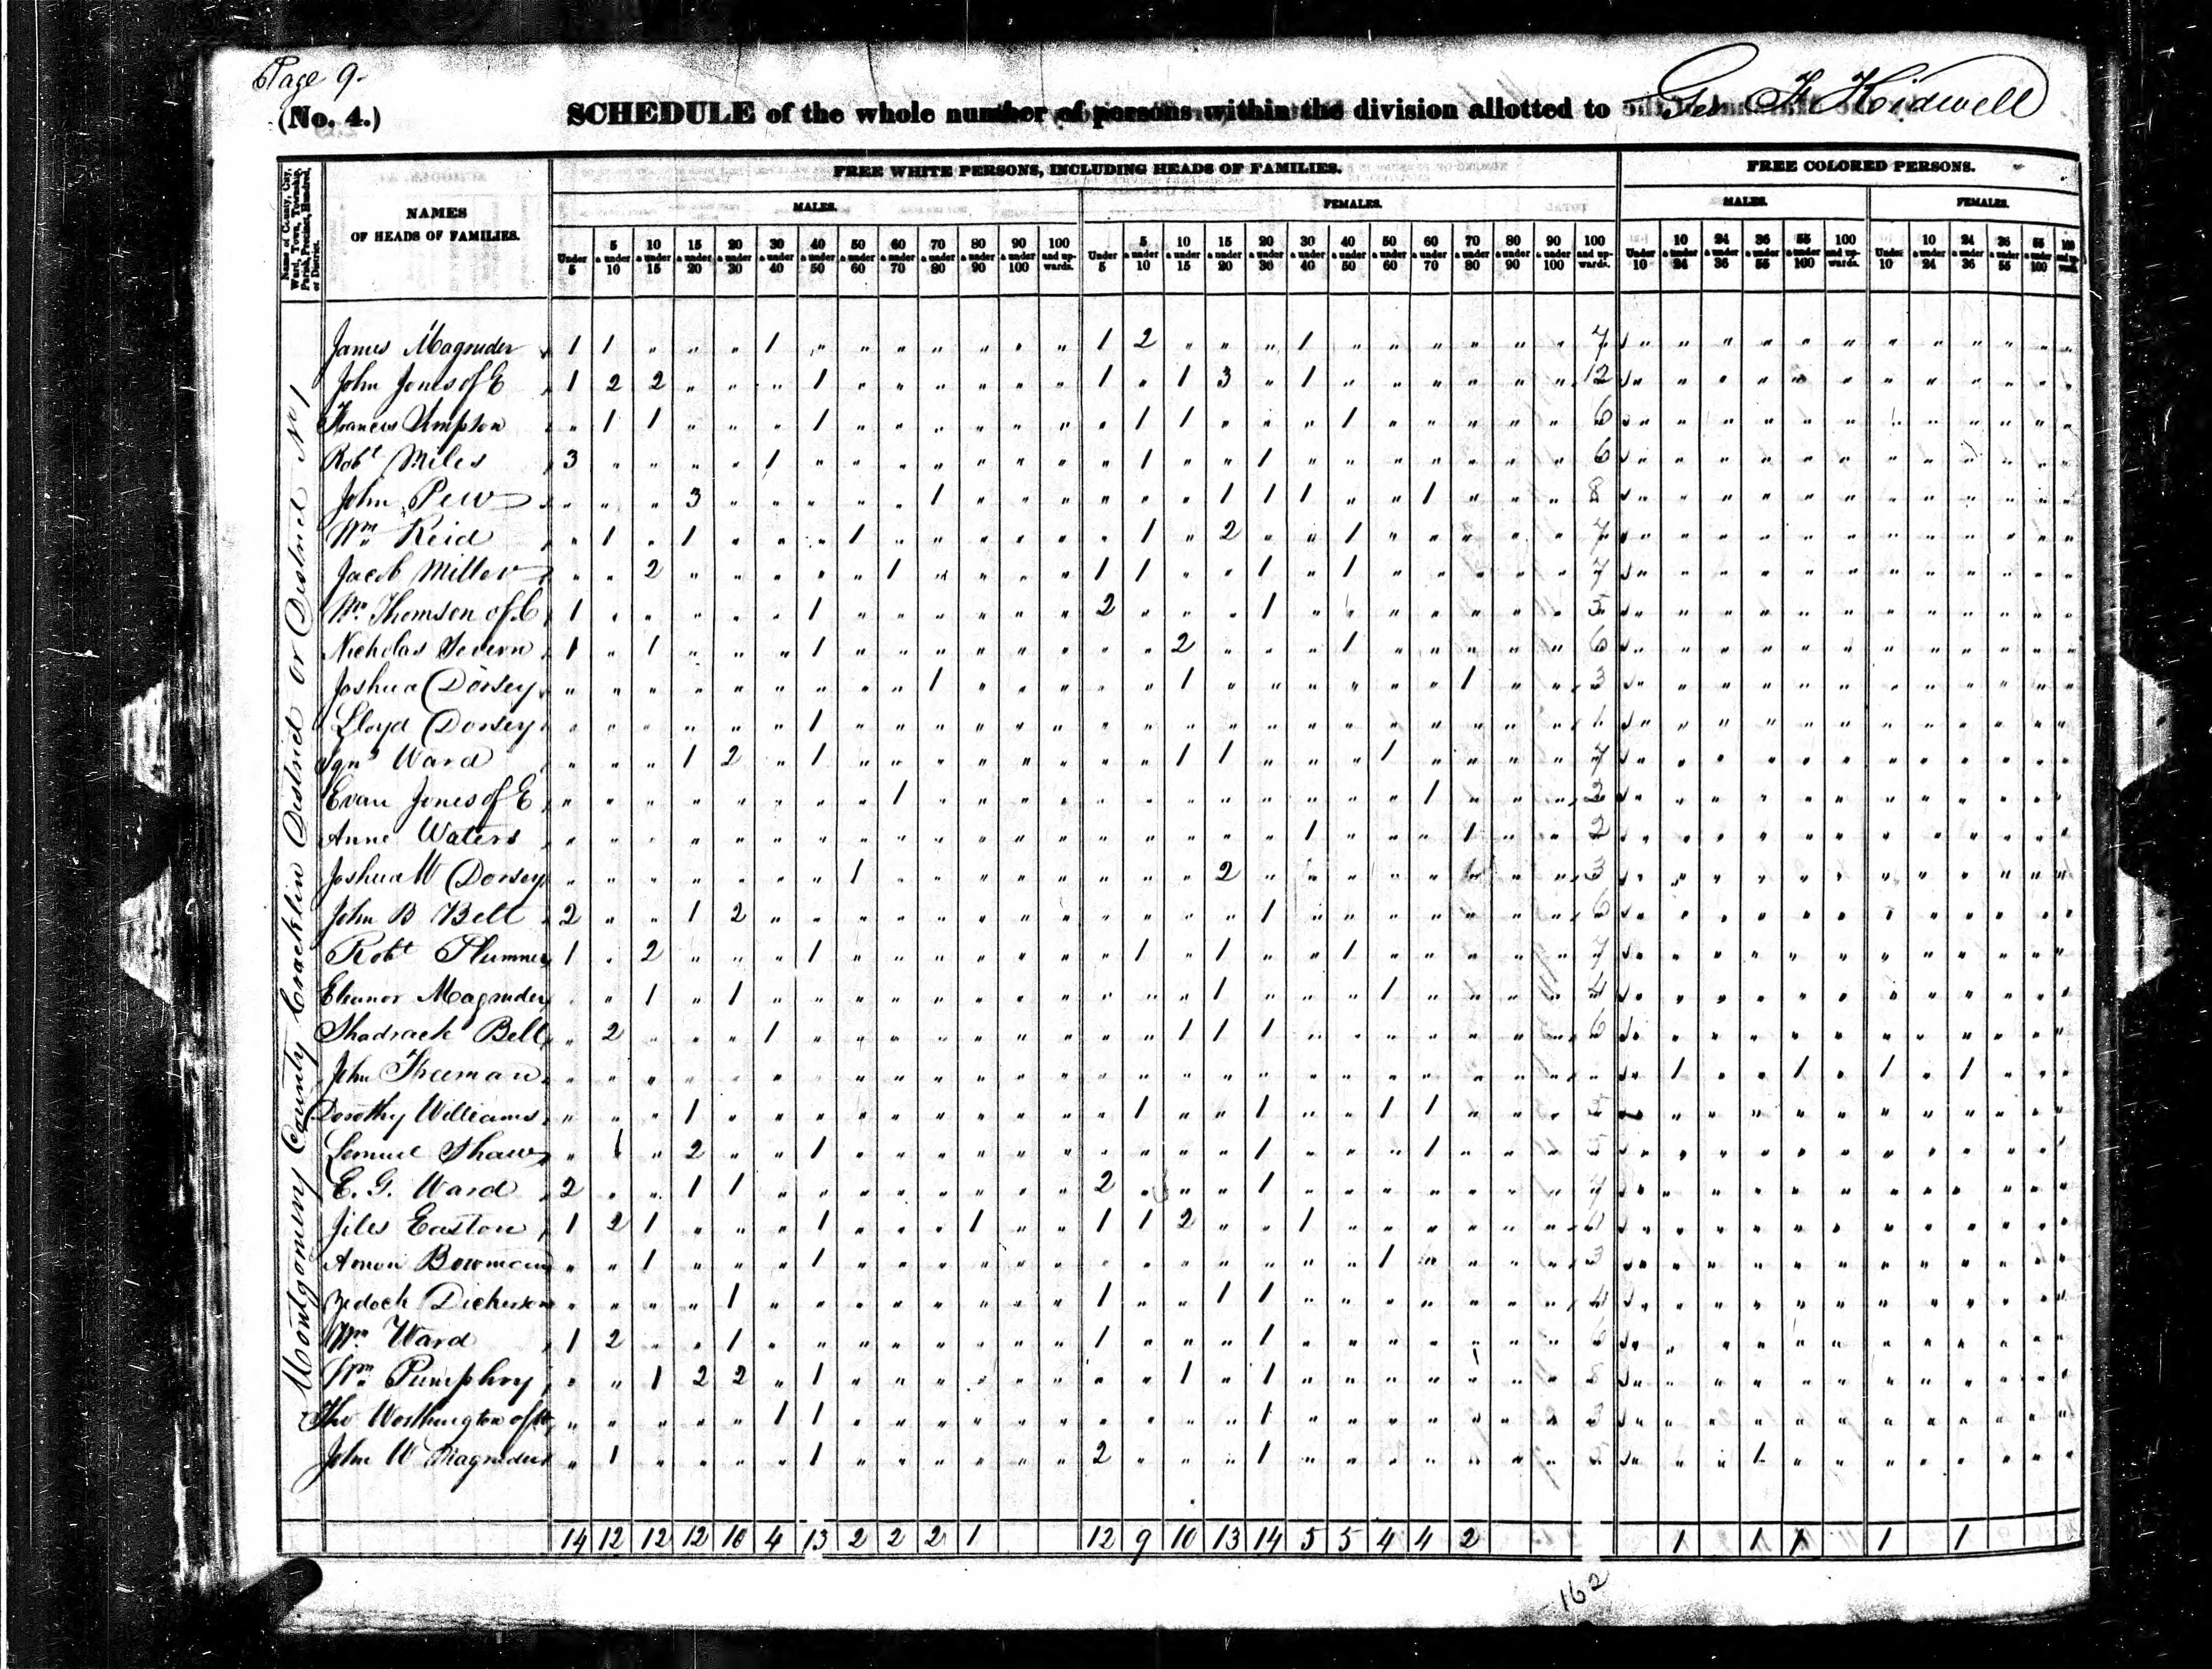 Page 9.
(No. 4.) SCHEDULE of the whole number of persons within the division allotted to Geo. H. Kidwell
Name of County, City, Ward, Town, Township, Parish, Precinct, Hundred, or District.
NAMES OF HEADS OF FAMILIES.
FREE WHITE PERSONS, INCLUDING HEADS OF FAMILIES.
FREE COLORED PERSONS.
MALES. FEMALES. MALES. FEMALES.
Under 5 5 & under 10 10 & under 15 15 & under 20 20 & under 30 30 & under 40 40 & under 50 50 & under 60 60 & under 70 70 & under 80 80 & under 90 90 & under 100 100 and upwards. Under 5 5 & under 10 10 & under 15 15 & under 20 20 & under 30 30 & under 40 40 & under 50 50 & under 60 60 & under 70 70 & under 80 80 & under 90 90 & under 100 100 and upwards. Under 10 10 & under 24 24 & under 36 36 & under 55 55 & under 100 100 and upwards. Under 10 10 & under 24 24 & under 36 36 & under 55 55 & under 100 100 and upwards.
Montgomery County Cracklin District or District No 1
James Magruder 1 1 1 1 2 1 7
John Jones of E 1 2 2 1 1 1 3 1 12
Francis Simpson 1 1 1 1 1 1 6
Robt Miles 3 1 1 1 6
John Pew 3 1 1 1 1 1 8
Wm Reid 1 1 1 1 2 1 7
Jacob Miller 2 1 1 1 1 1 7
Wm Thomson of C 1 1 2 1 5
Nicholas Severn 1 1 1 2 1 6
Joshua Dorsey 1 1 1 3
Lloyd Dorsey 1 1
Igns Ward 1 2 1 1 1 1 7
Evan Jones of E 1 1 2
Anne Waters 1 1 2
Joshua W Dorsey 1 2 3
John B Belt 2 1 2 1 6
Robt Plummer 1 2 1 1 1 1 7
Eleanor Magruder 1 1 1 1 4
Shadrach Bell 2 1 1 1 1 6
John Freeman 1 1 1 1
Dorothy Williams 1 1 1 1 1 5
Lemuel Shaw 1 2 1 1 1
E. G. Ward 2 1 1 2 1 7
Jiles Easton 1 2 1 1 1 1 1 2 1
Amon Bowman 1 1 1 3
Zedock Dickerson 1 1 1 1 4
Wm Ward 1 2 1 1 1 6
Wm Pumphry 1 2 2 1 1 1 8
Tho Worthington of 1 1 1 3
John W Magruder 1 1 2 1 5 1
14 12 12 12 10 4 13 2 2 2 1 12 9 10 13 14 5 5 4 4 2 1 1 1 1 1
162